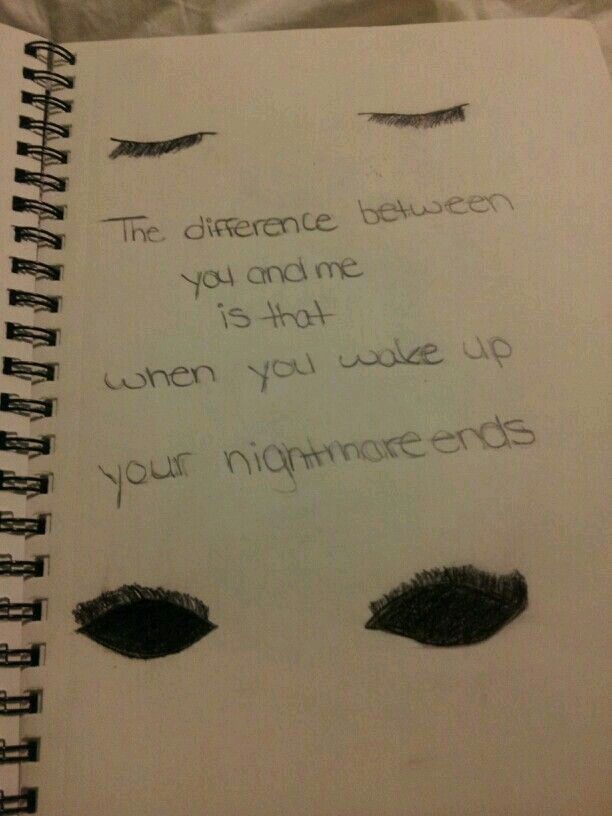 The difference between
you and me
is that
when you wake up
your nightmare ends